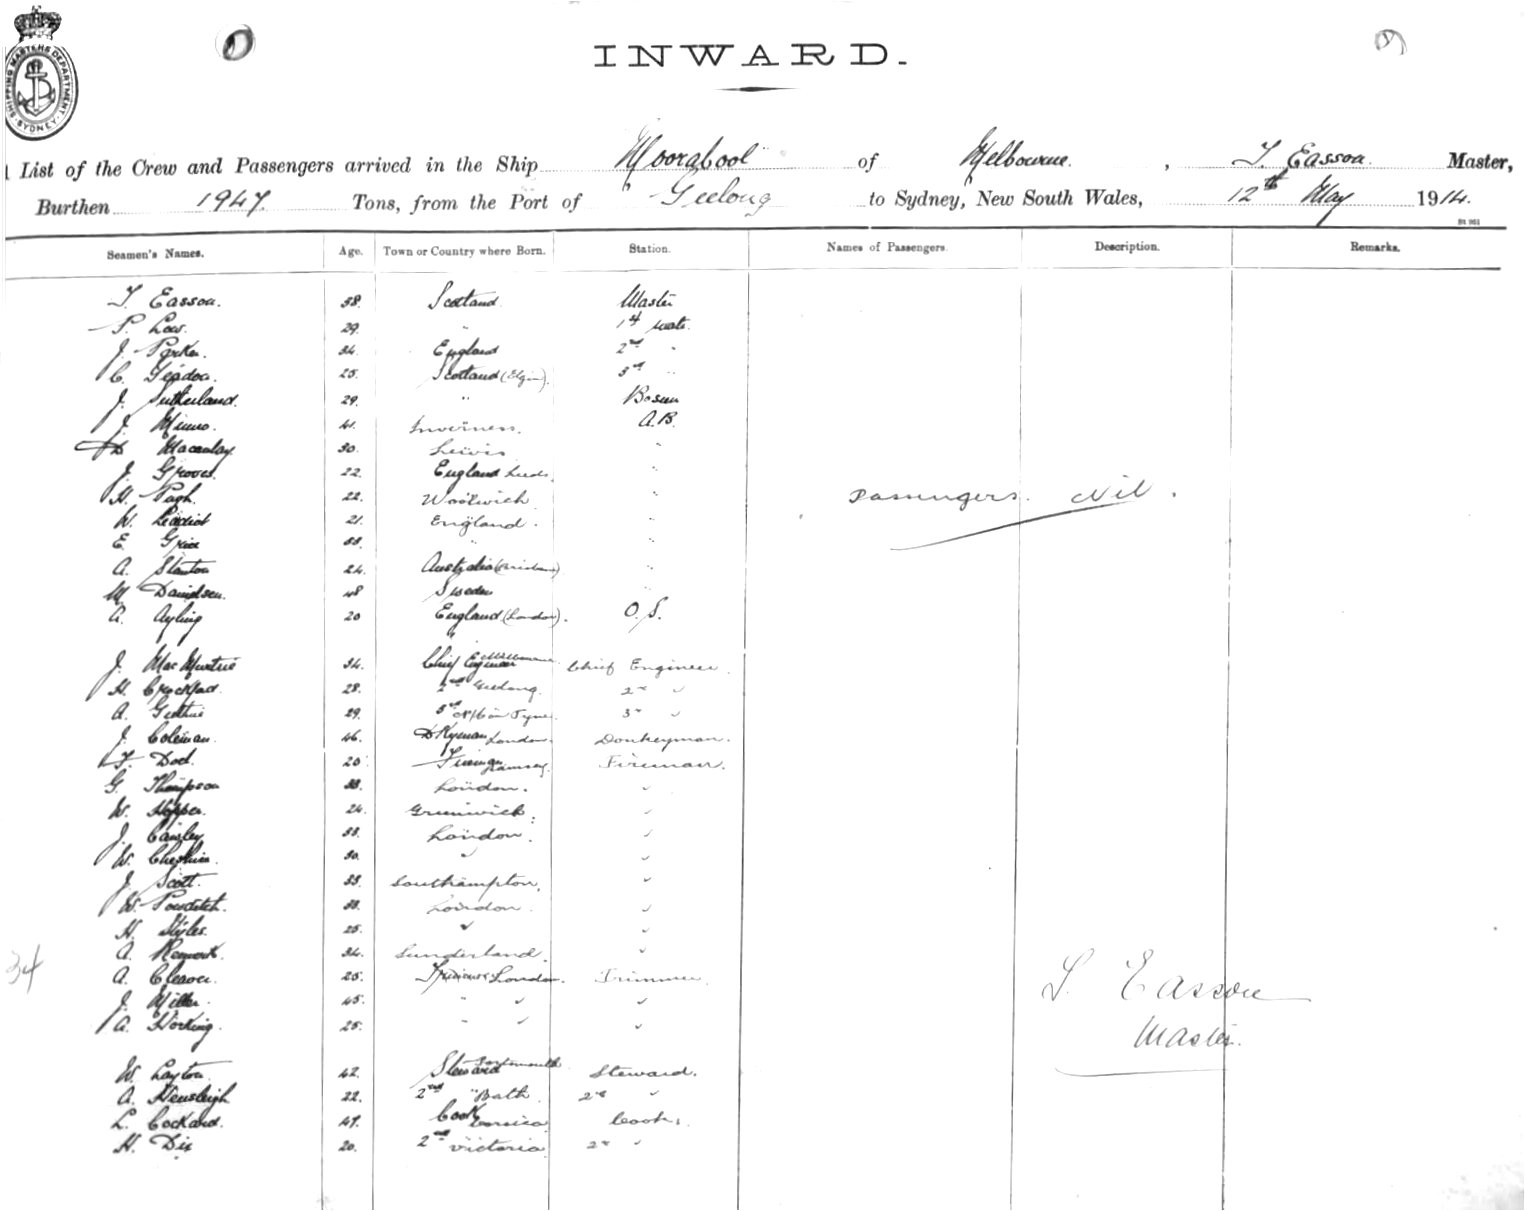 SHIPPING MASTERS DEPARTMENT. SYDNEY
INWARD.
List of the Crew and Passengers arrived in the Ship Moorabool of Melbourne. , T. Easson. Master,
Burthen 1947. Tons, from the Port of Geelong to Sydney, New South Wales, 12th May 1914.
Seamen's Names. Age. Town or Country where Born. Station. Names of Passengers. Description. Remarks.
T. Easson. 38. Scotland. Master
P. Low. 29. " 1st mate.
J. Parker. 34. England 2nd "
C. 25. Scotland (Elgin). 3rd "
J. Sutherland. 29. " Bosun
J. Munro. 41. Inverness. A.B.
D Macaulay. 30. Lewis "
J. Groves. 22. England Leeds. "
H. Pugh. 22. Woolwich "
W. 21. England. "
E. Grice 33. " "
A. Stanton 24. Australia (Brisbane) "
M Danielsen. 48 Sweden "
A. Ayling 20 England (London). O.S.
J. MacMurtrie 34. Chief Engineer Melbourne Chief Engineer.
H. Crockford. 28. 2nd Geelong. 2nd "
A. Guthrie 29. 3rd N/C on Tyne. 3rd "
J. Coleman. 46. DKyman London. Donkeyman.
F. Dod. 20 Fireman Ramsey. Fireman.
G. Thompson 33. London. "
W. Hopper. 24. Greenwich. "
J. Cansley 33. London. "
W. Cheshire. 30. " "
J. Scott. 33. Southampton. "
W. Powditch. 33. London. "
H. Styles. 25. " "
A. 34. Sunderland. "
A. Cleaver. 25. Trimmer London. Trimmer.
J. Miller. 45. " " "
A. Hocking. 25. " " "
W. Layton. 42. Steward Portmouth Steward.
A. Hensleigh 22. 2nd " Bath. 2nd "
L. Cockard. 47. Cook Corsica Cook.
H. Dix 20. 2nd " Victoria 2nd "
Passengers. Nil.
34
T. Easson
Master.